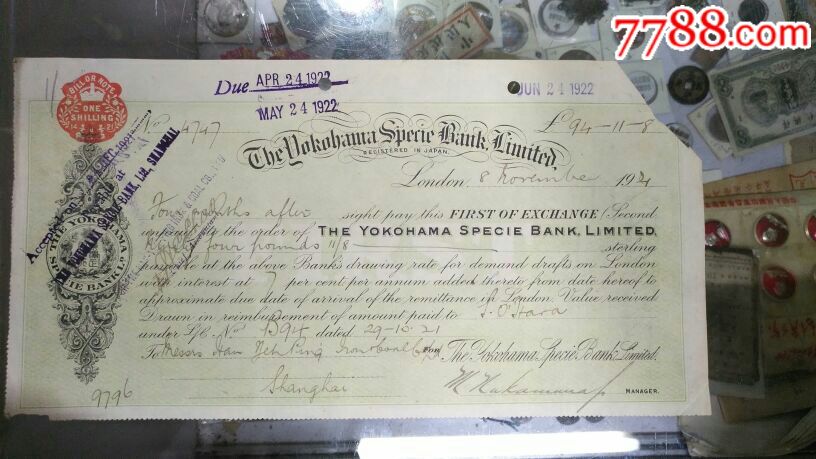 7788.com
Due APR 24 1922
MAY 24 1922
JUN 24 1922
BILL OR NOTE
ONE SHILLING
No 4747
£94-11-8
The Yokohama Specie Bank, Limited,
REGISTERED IN JAPAN.
London, 8 November 1921
Four months after sight pay this FIRST OF EXCHANGE (Second
unpaid) to the order of THE YOKOHAMA SPECIE BANK, LIMITED,
Ninety four pounds 11/8 sterling
payable at the above Bank's drawing rate for demand drafts on London
with interest at 7 per cent per annum added thereto from date hereof to
approximate due date of arrival of the remittance in London. Value received
Drawn in reimbursement of amount paid to S. O'Hara
under L/C No dated 29-10-21
To Messrs Han Yeh Ping Iron & Coal Co
For The Yokohama Specie Bank, Limited.
Shanghai
MANAGER.
THE YOKOHAMA SPECIE BANK LD
9796